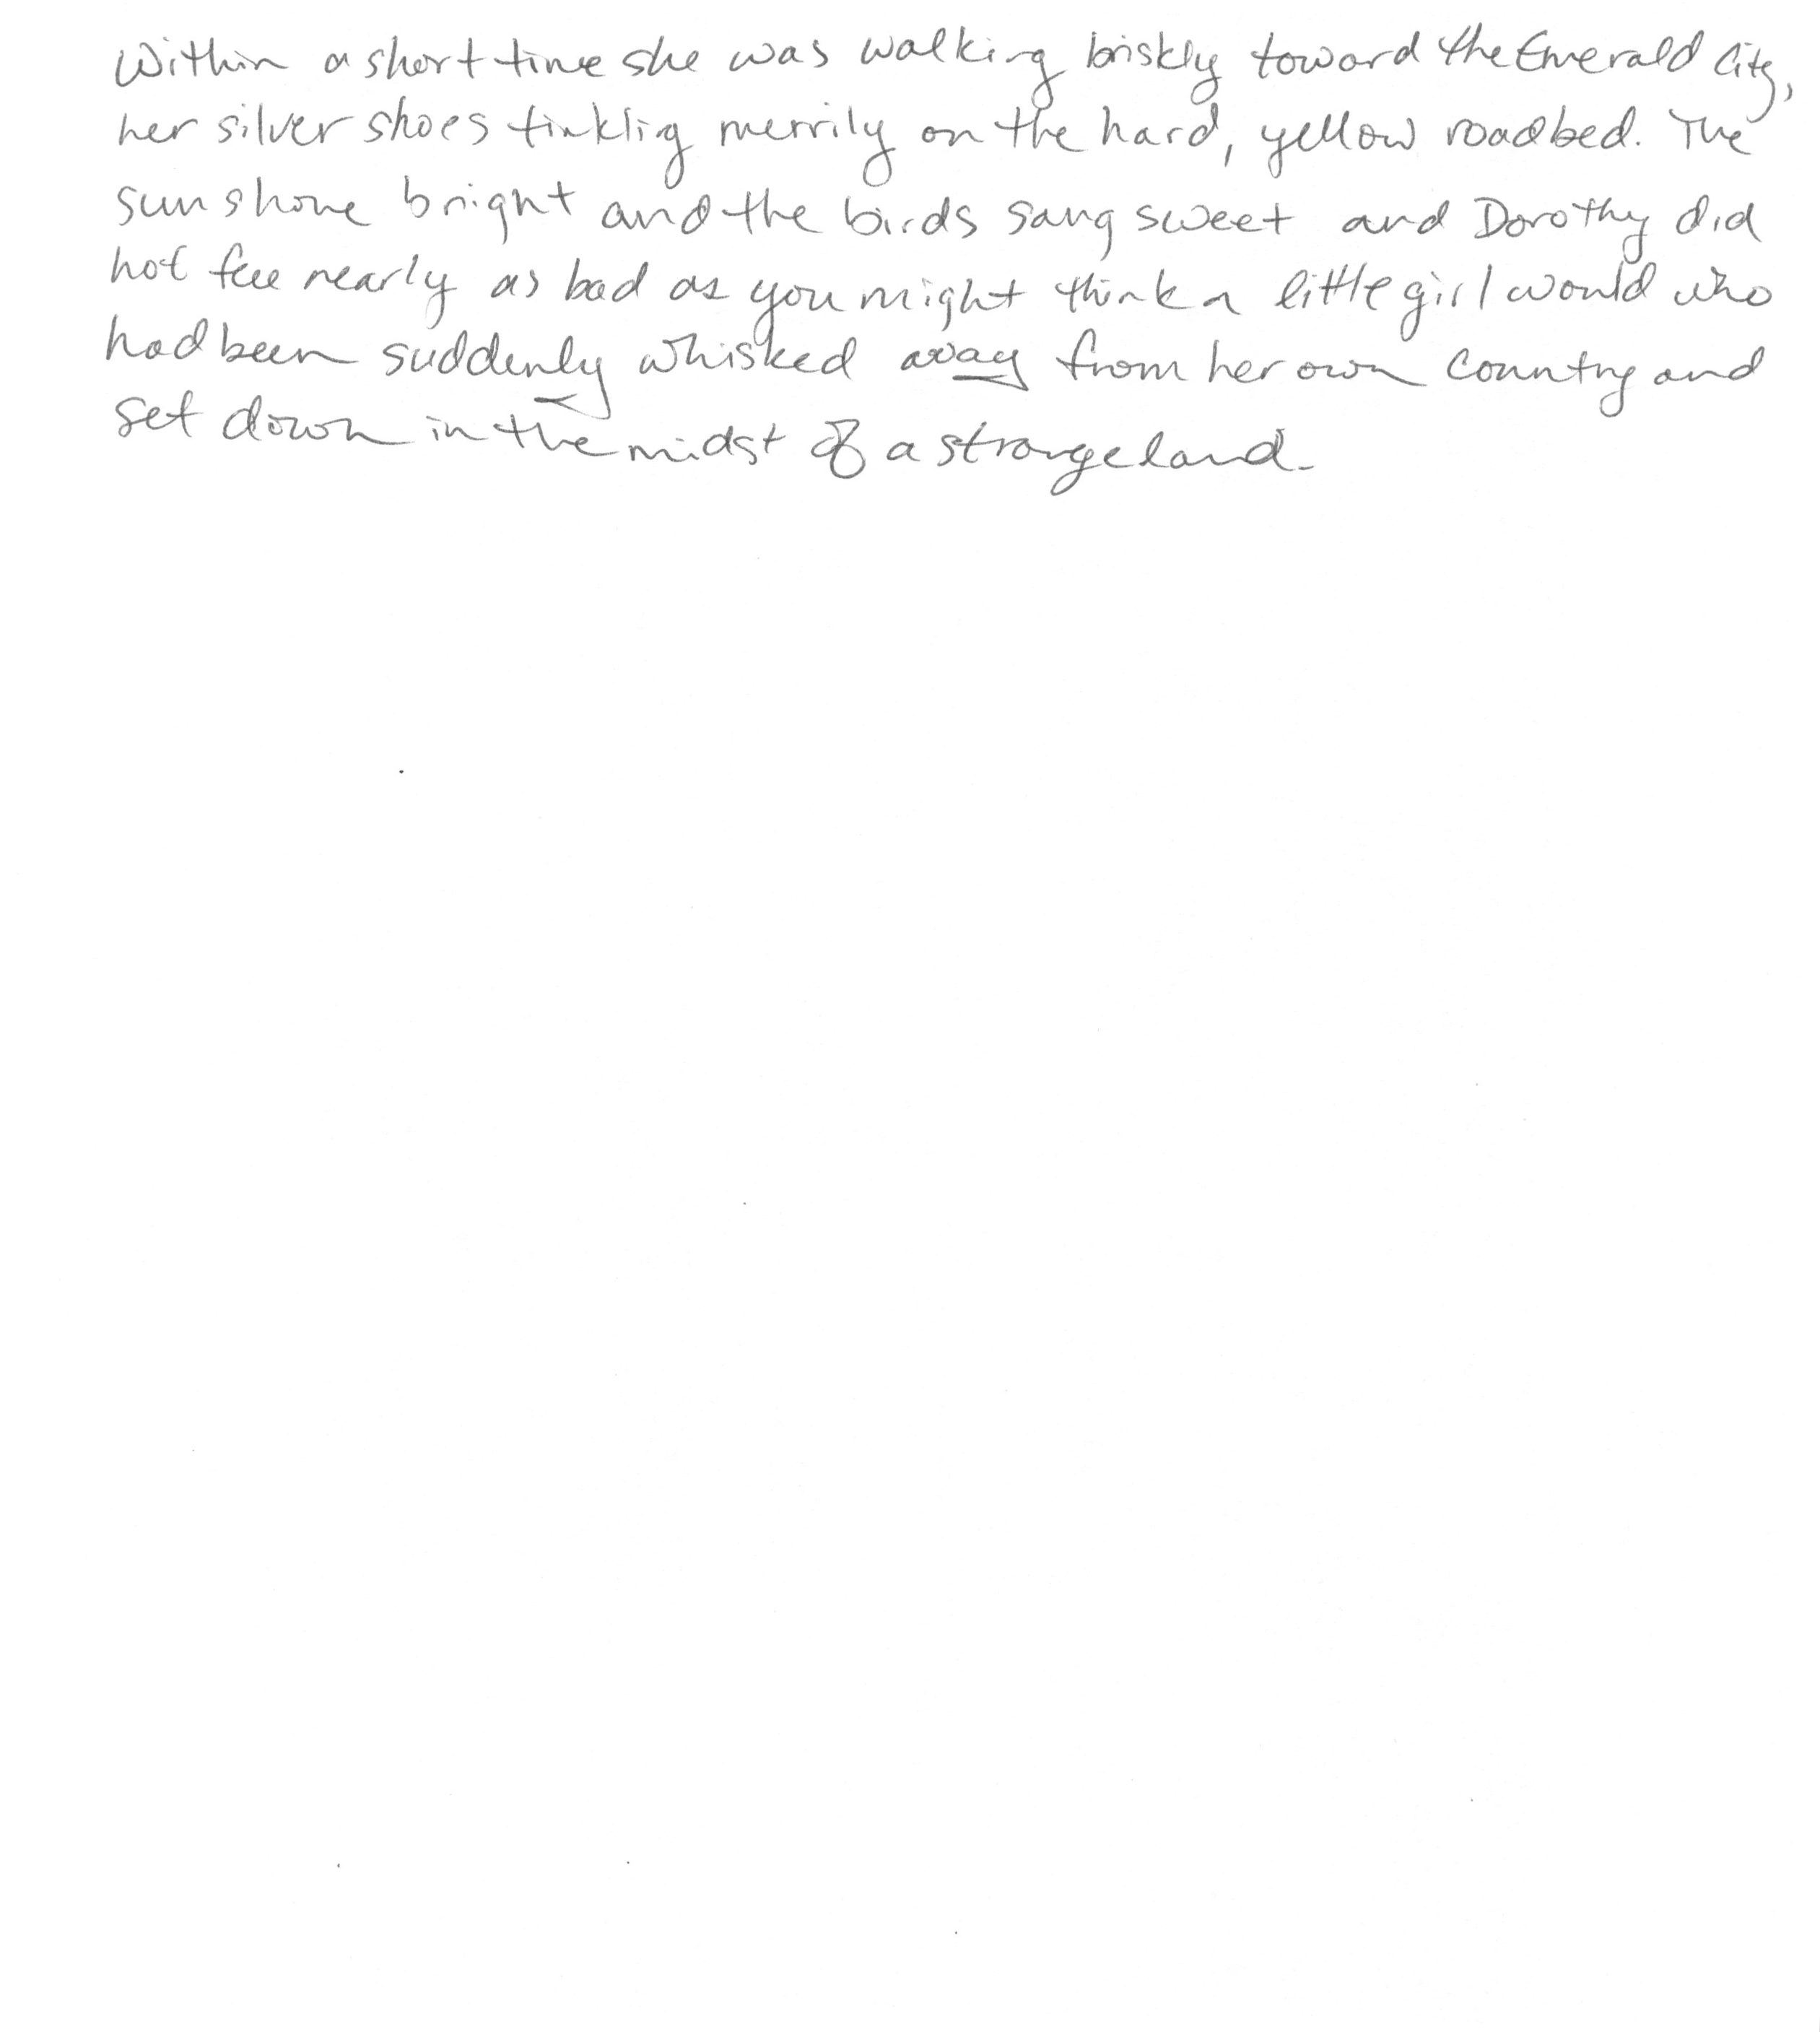 Within a short time she was walking briskly toward the Emerald City,
her silver shoes tinkling merrily on the hard, yellow roadbed. The
sun shone bright and the birds sang sweet and Dorothy did
not feel nearly as bad as you might think a little girl would who
had been suddenly whisked away from her own country and
set down in the midst of a strange land.